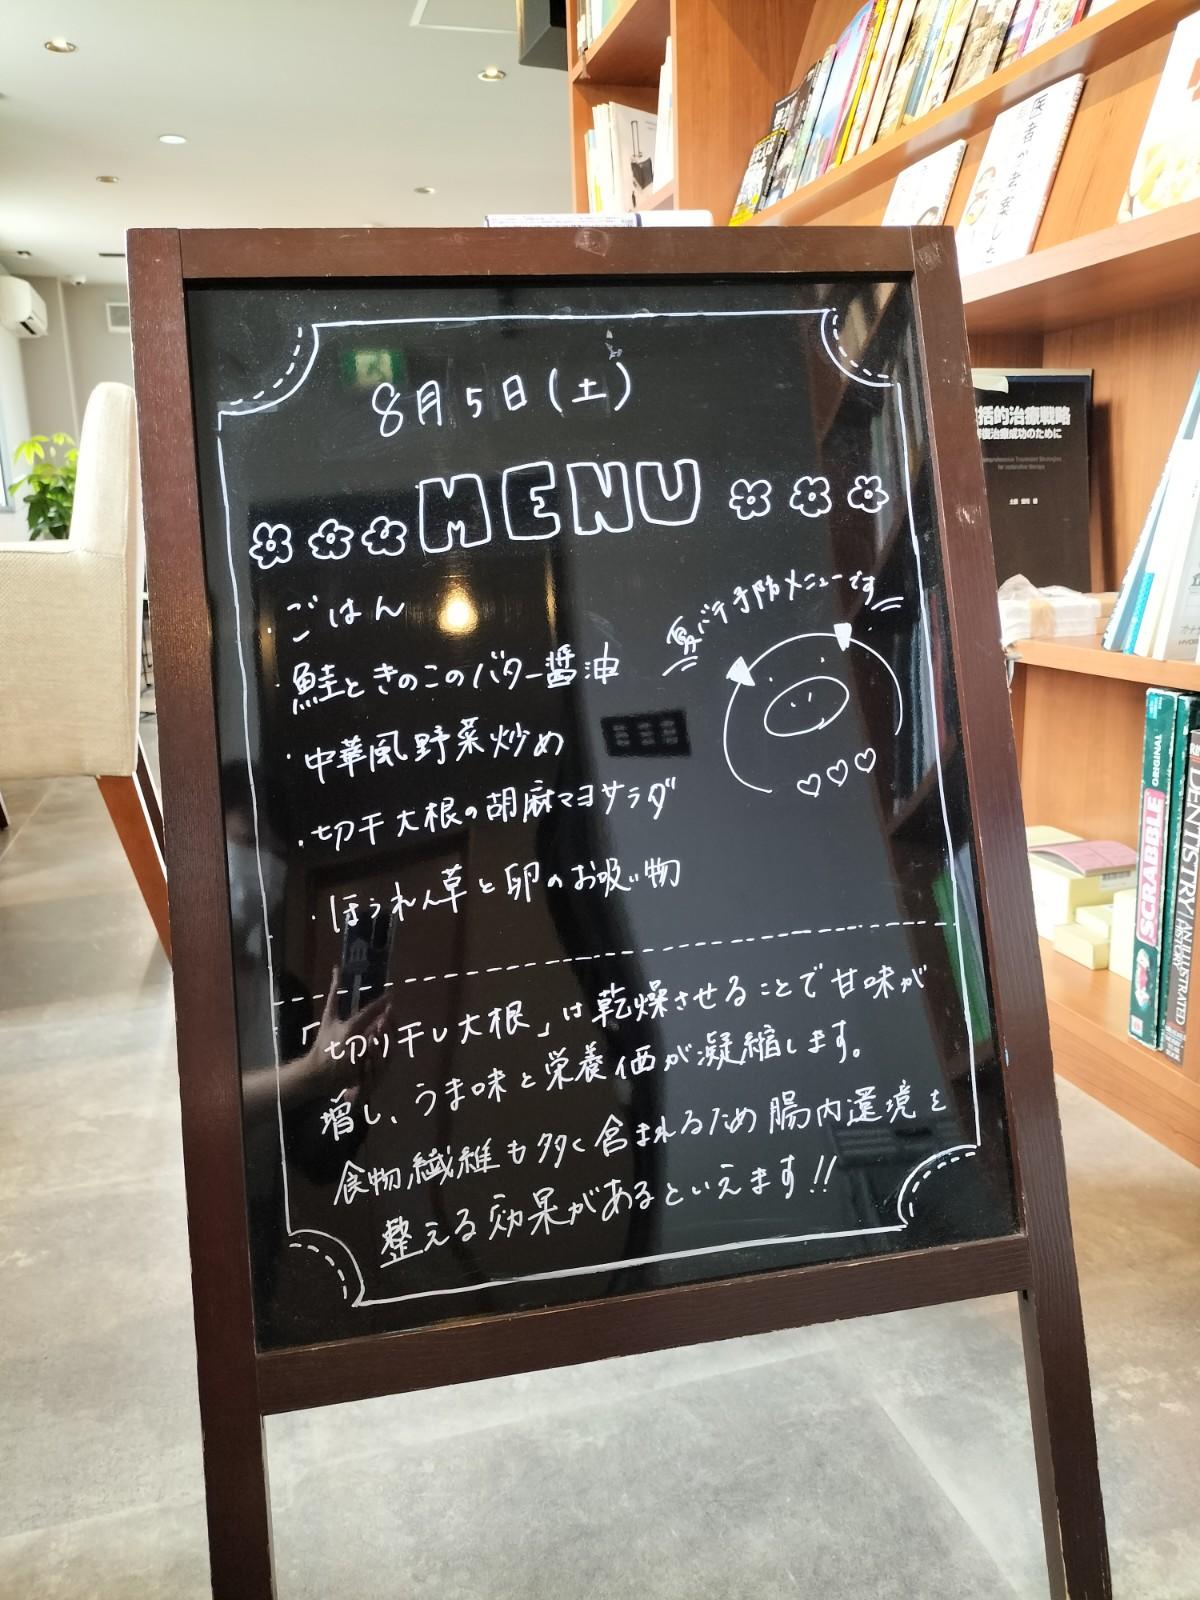 8月5日(土)
MENU
・ごはん
・鮭ときのこのバター醤油
・中華風野菜炒め
・切干大根の胡麻マヨサラダ
・ほうれん草と卵のお吸い物
夏バテ予防メニューです
「切り干し大根」は乾燥させることで甘味が
増し、うま味と栄養価が凝縮します。
食物繊維も多く含まれるため腸内環境を
整える効果があるといえます!!
医者が考案した
括的治療戦略
復治療成功のために
Comprehensive Treatment Strategies
for restorative therapy
ORIGINAL
SCRABBLE
DENTISTRY/AN ILLUSTRATED
HISTORY